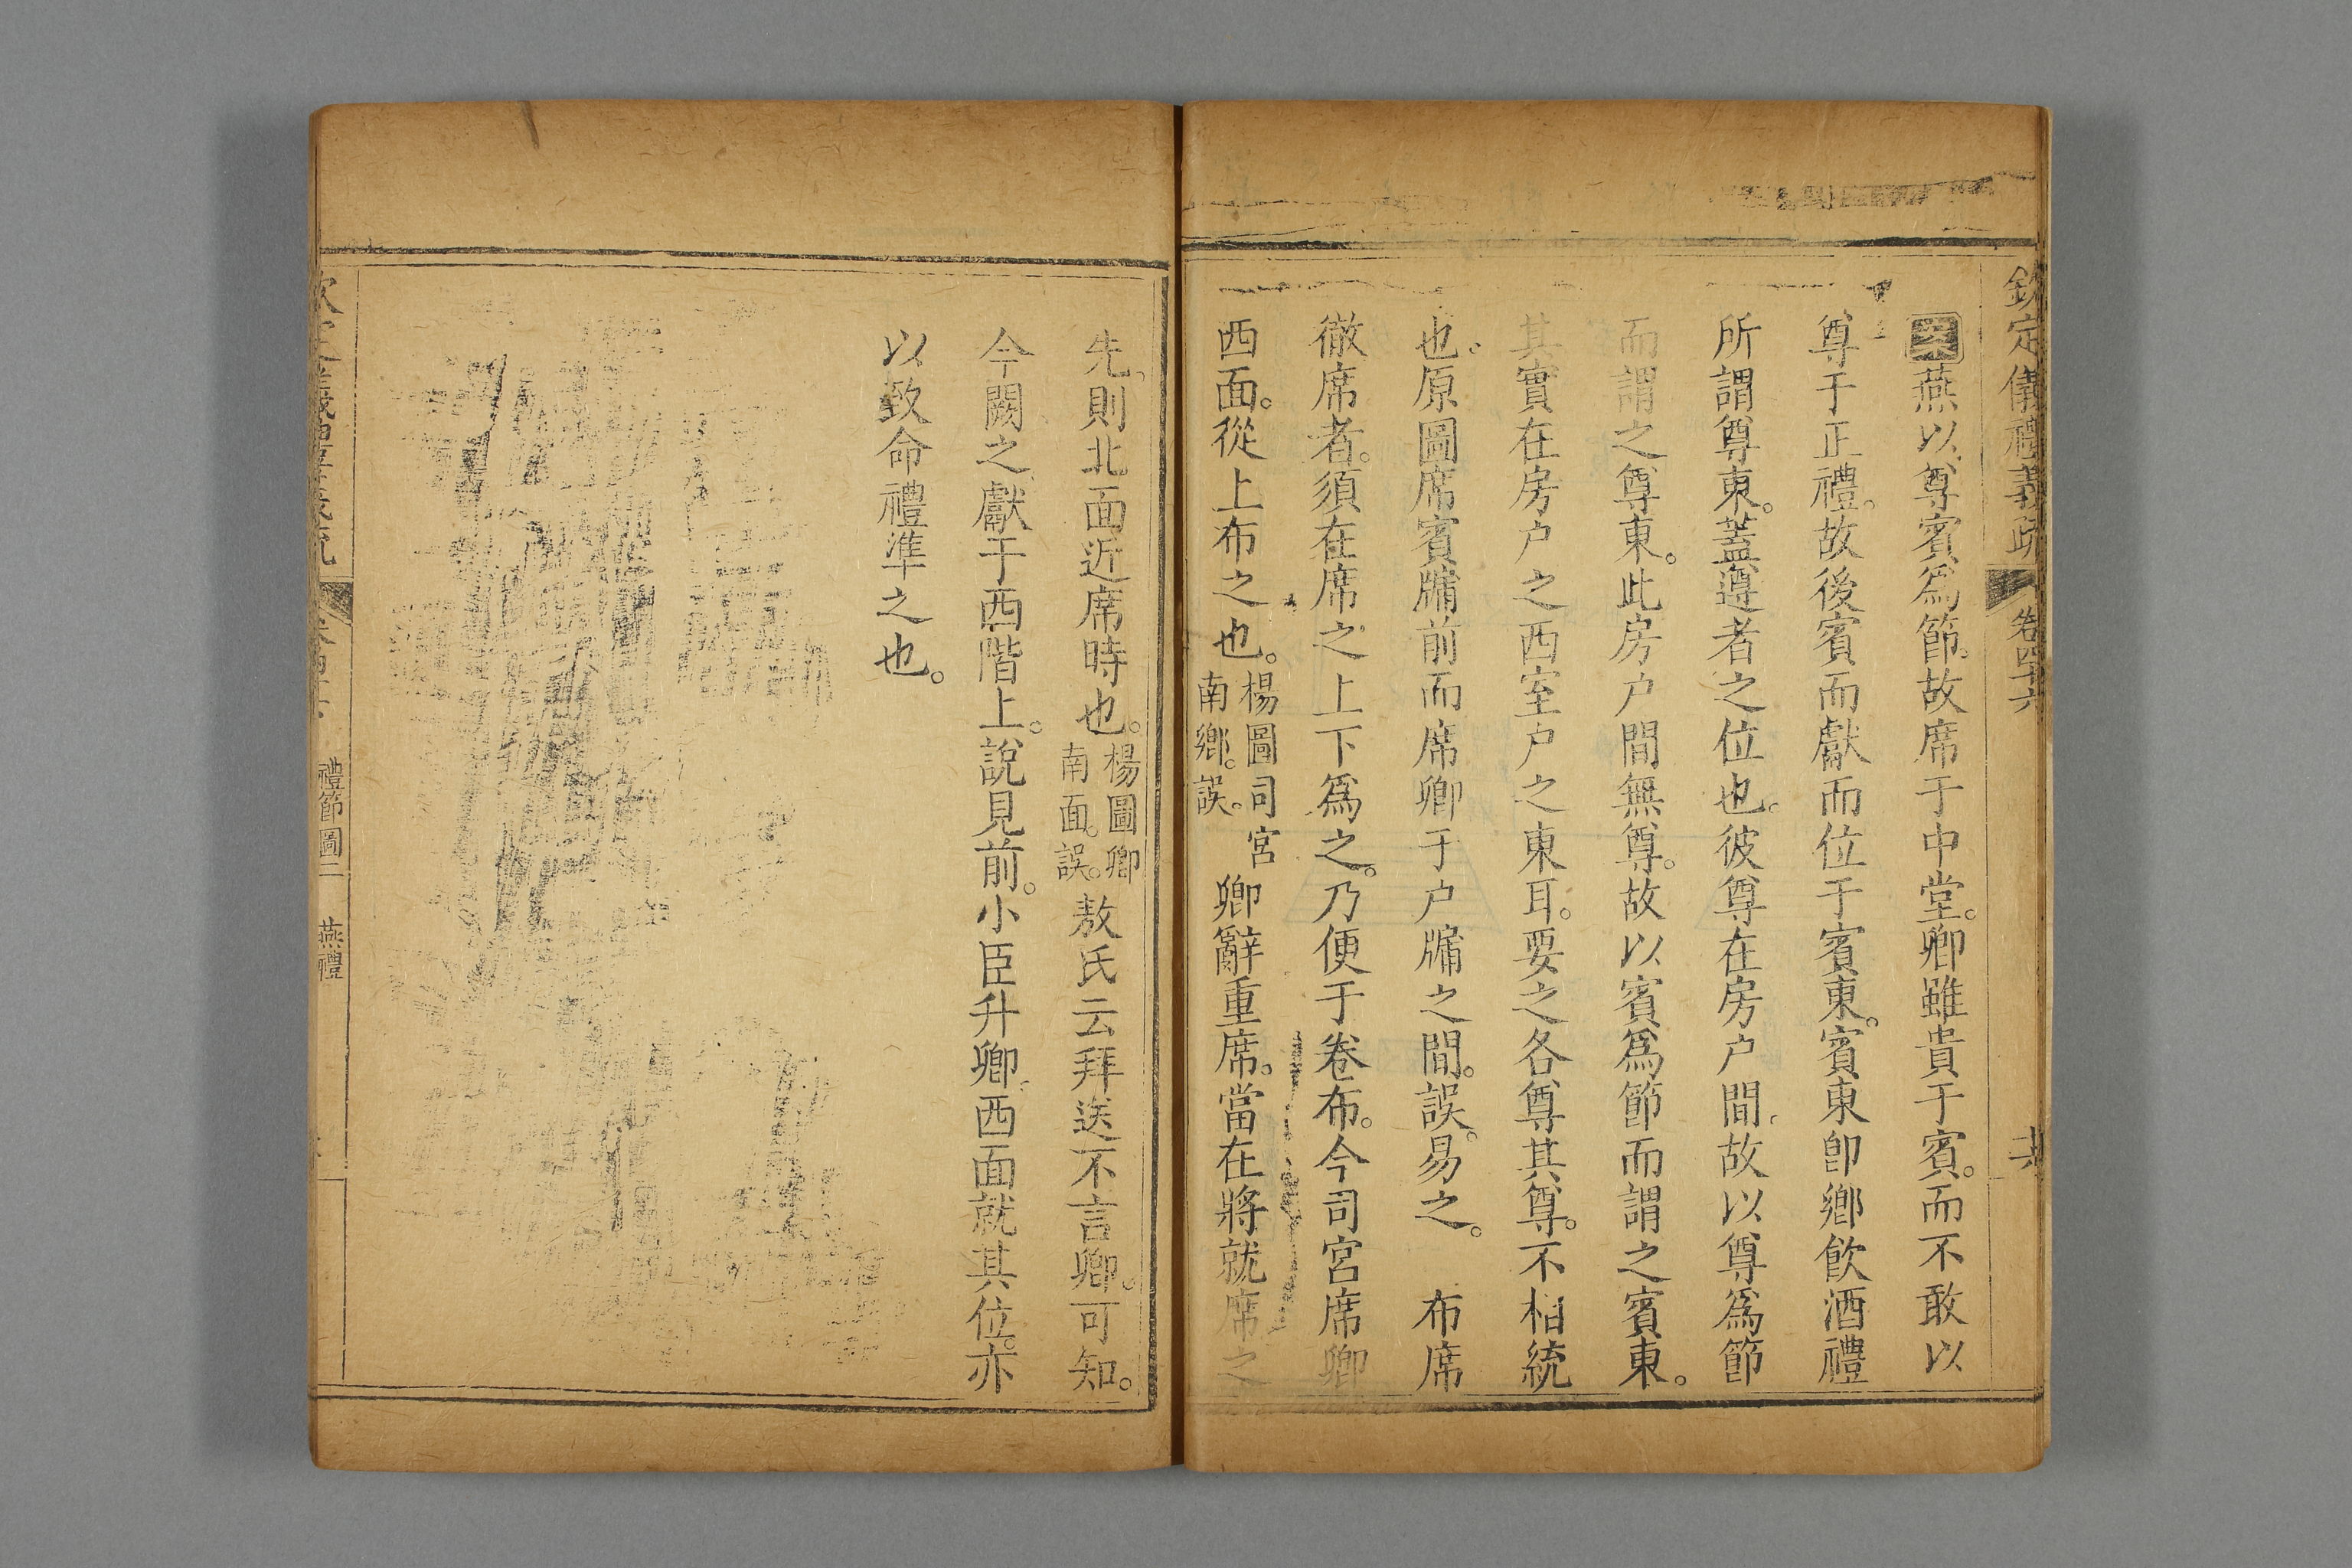 欽定儀禮義疏 卷四十六
案燕以尊賓爲節。故席于中堂。卿雖貴于賓。而不敢以
尊于正禮。故後賓而獻而位于賓東。賓東卽鄉飲酒禮
所謂尊東。蓋遵者之位也。彼尊在房户間。故以尊爲節
而謂之尊東。此房户間無尊。故以賓爲節而謂之賓東。
其實在房户之西室户之東耳。要之各尊其尊。不相統
也。原圖席賓牖前而席卿于户牖之間。誤。易之。 布席
徹席者。須在席之上下爲之。乃便于卷布。今司宮席卿
西面。從上布之也。楊圖司宮南鄉。誤。卿辭重席。當在將就席之
先。則北面近席時也。楊圖卿南面。誤。敖氏云拜送不言卿。可知。
今闕之獻于西階上。說見前。小臣升卿。西面就其位。亦
以致命禮準之也。
禮節圖二 燕禮